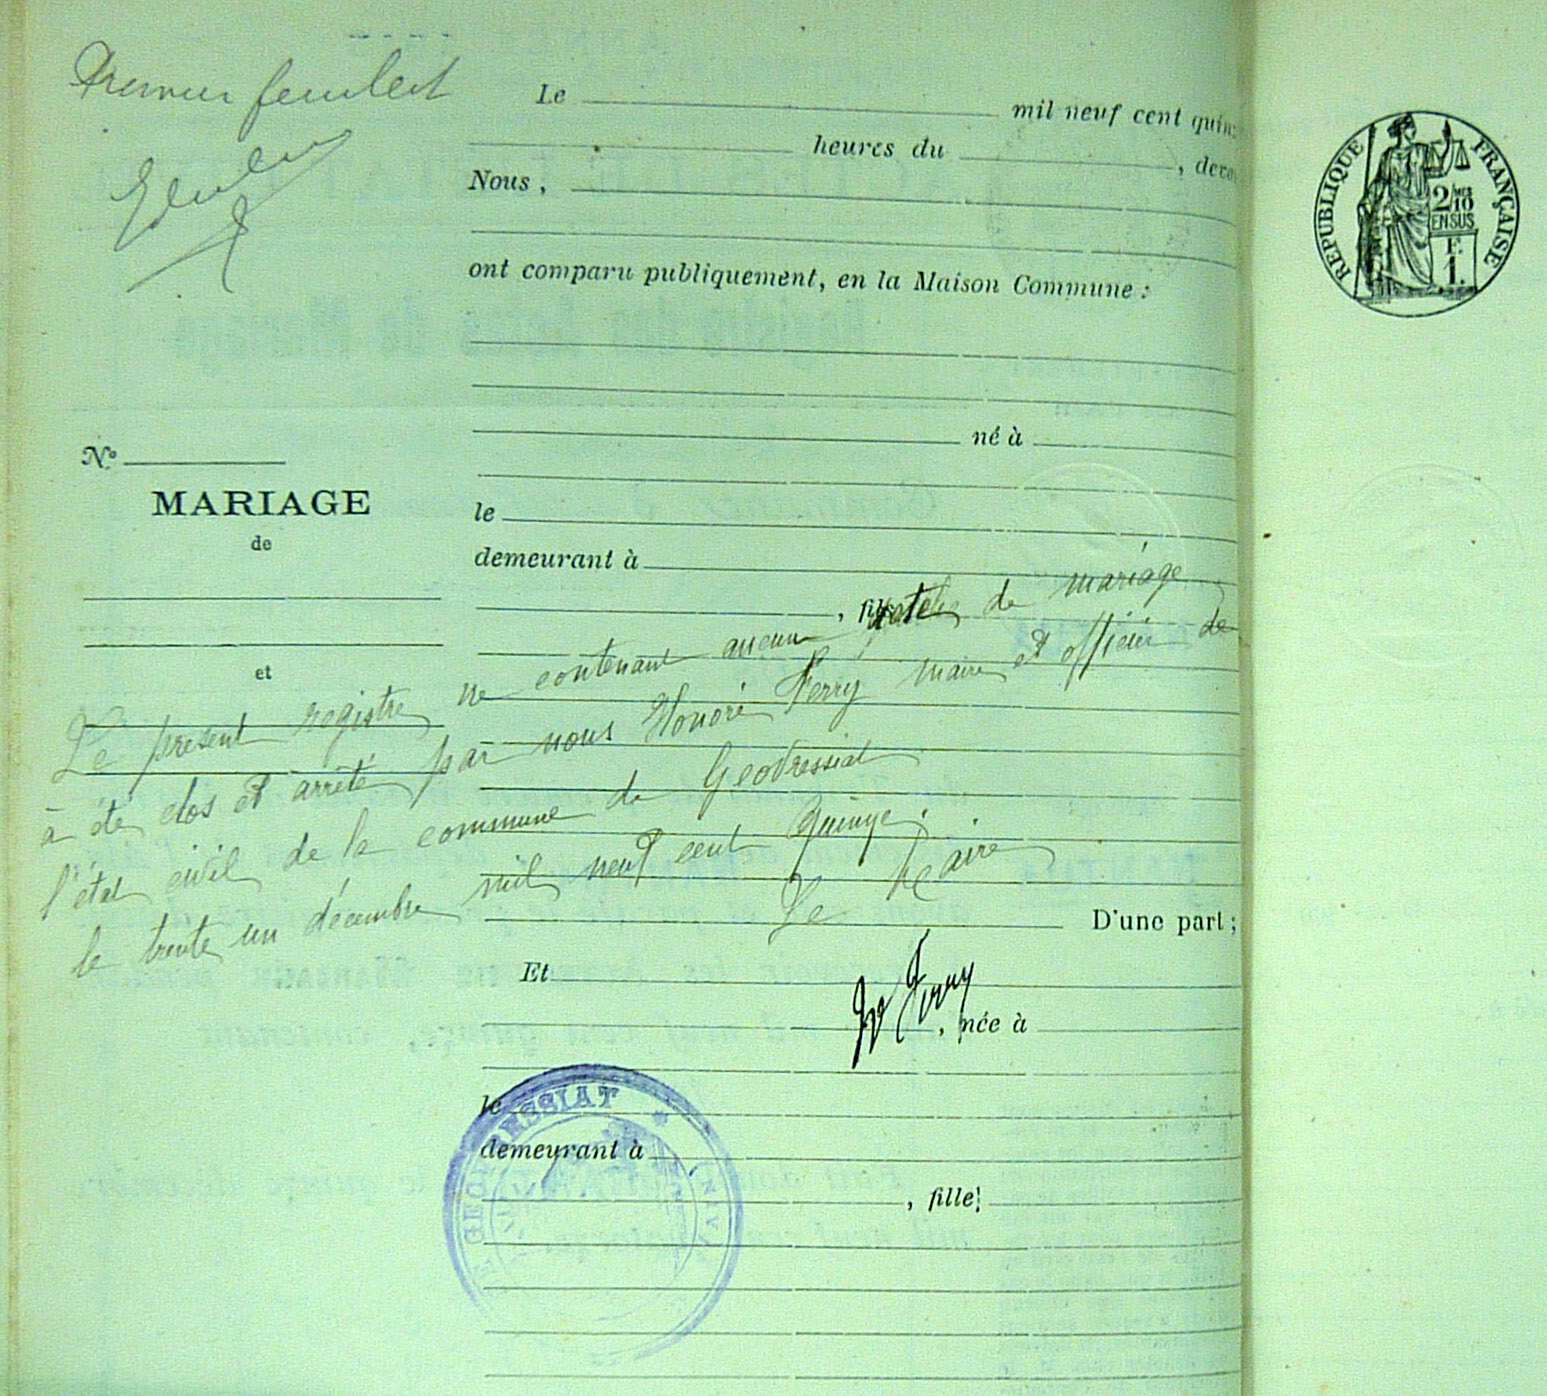 Premier feuillet
Le mil neuf cent quin
heures du , deva
Nous ,
ont comparu publiquement, en la Maison Commune :
né à
No
MARIAGE
de
le
demeurant à
, fils
et
Le présent registre ne contenant aucun acte de mariage
à été clos et arrêté par nous Honoré Perry maire et officier de
l'état civil de la commune de Geovressiat
le trente un décembre mil neuf cent quinze.
Le Maire
D'une part ;
Et
, née à
le
demeurant à
, fille
GEOVRESSIAT
REPUBLIQUE FRANÇAISE
2/10
EN SUS
F.
1.